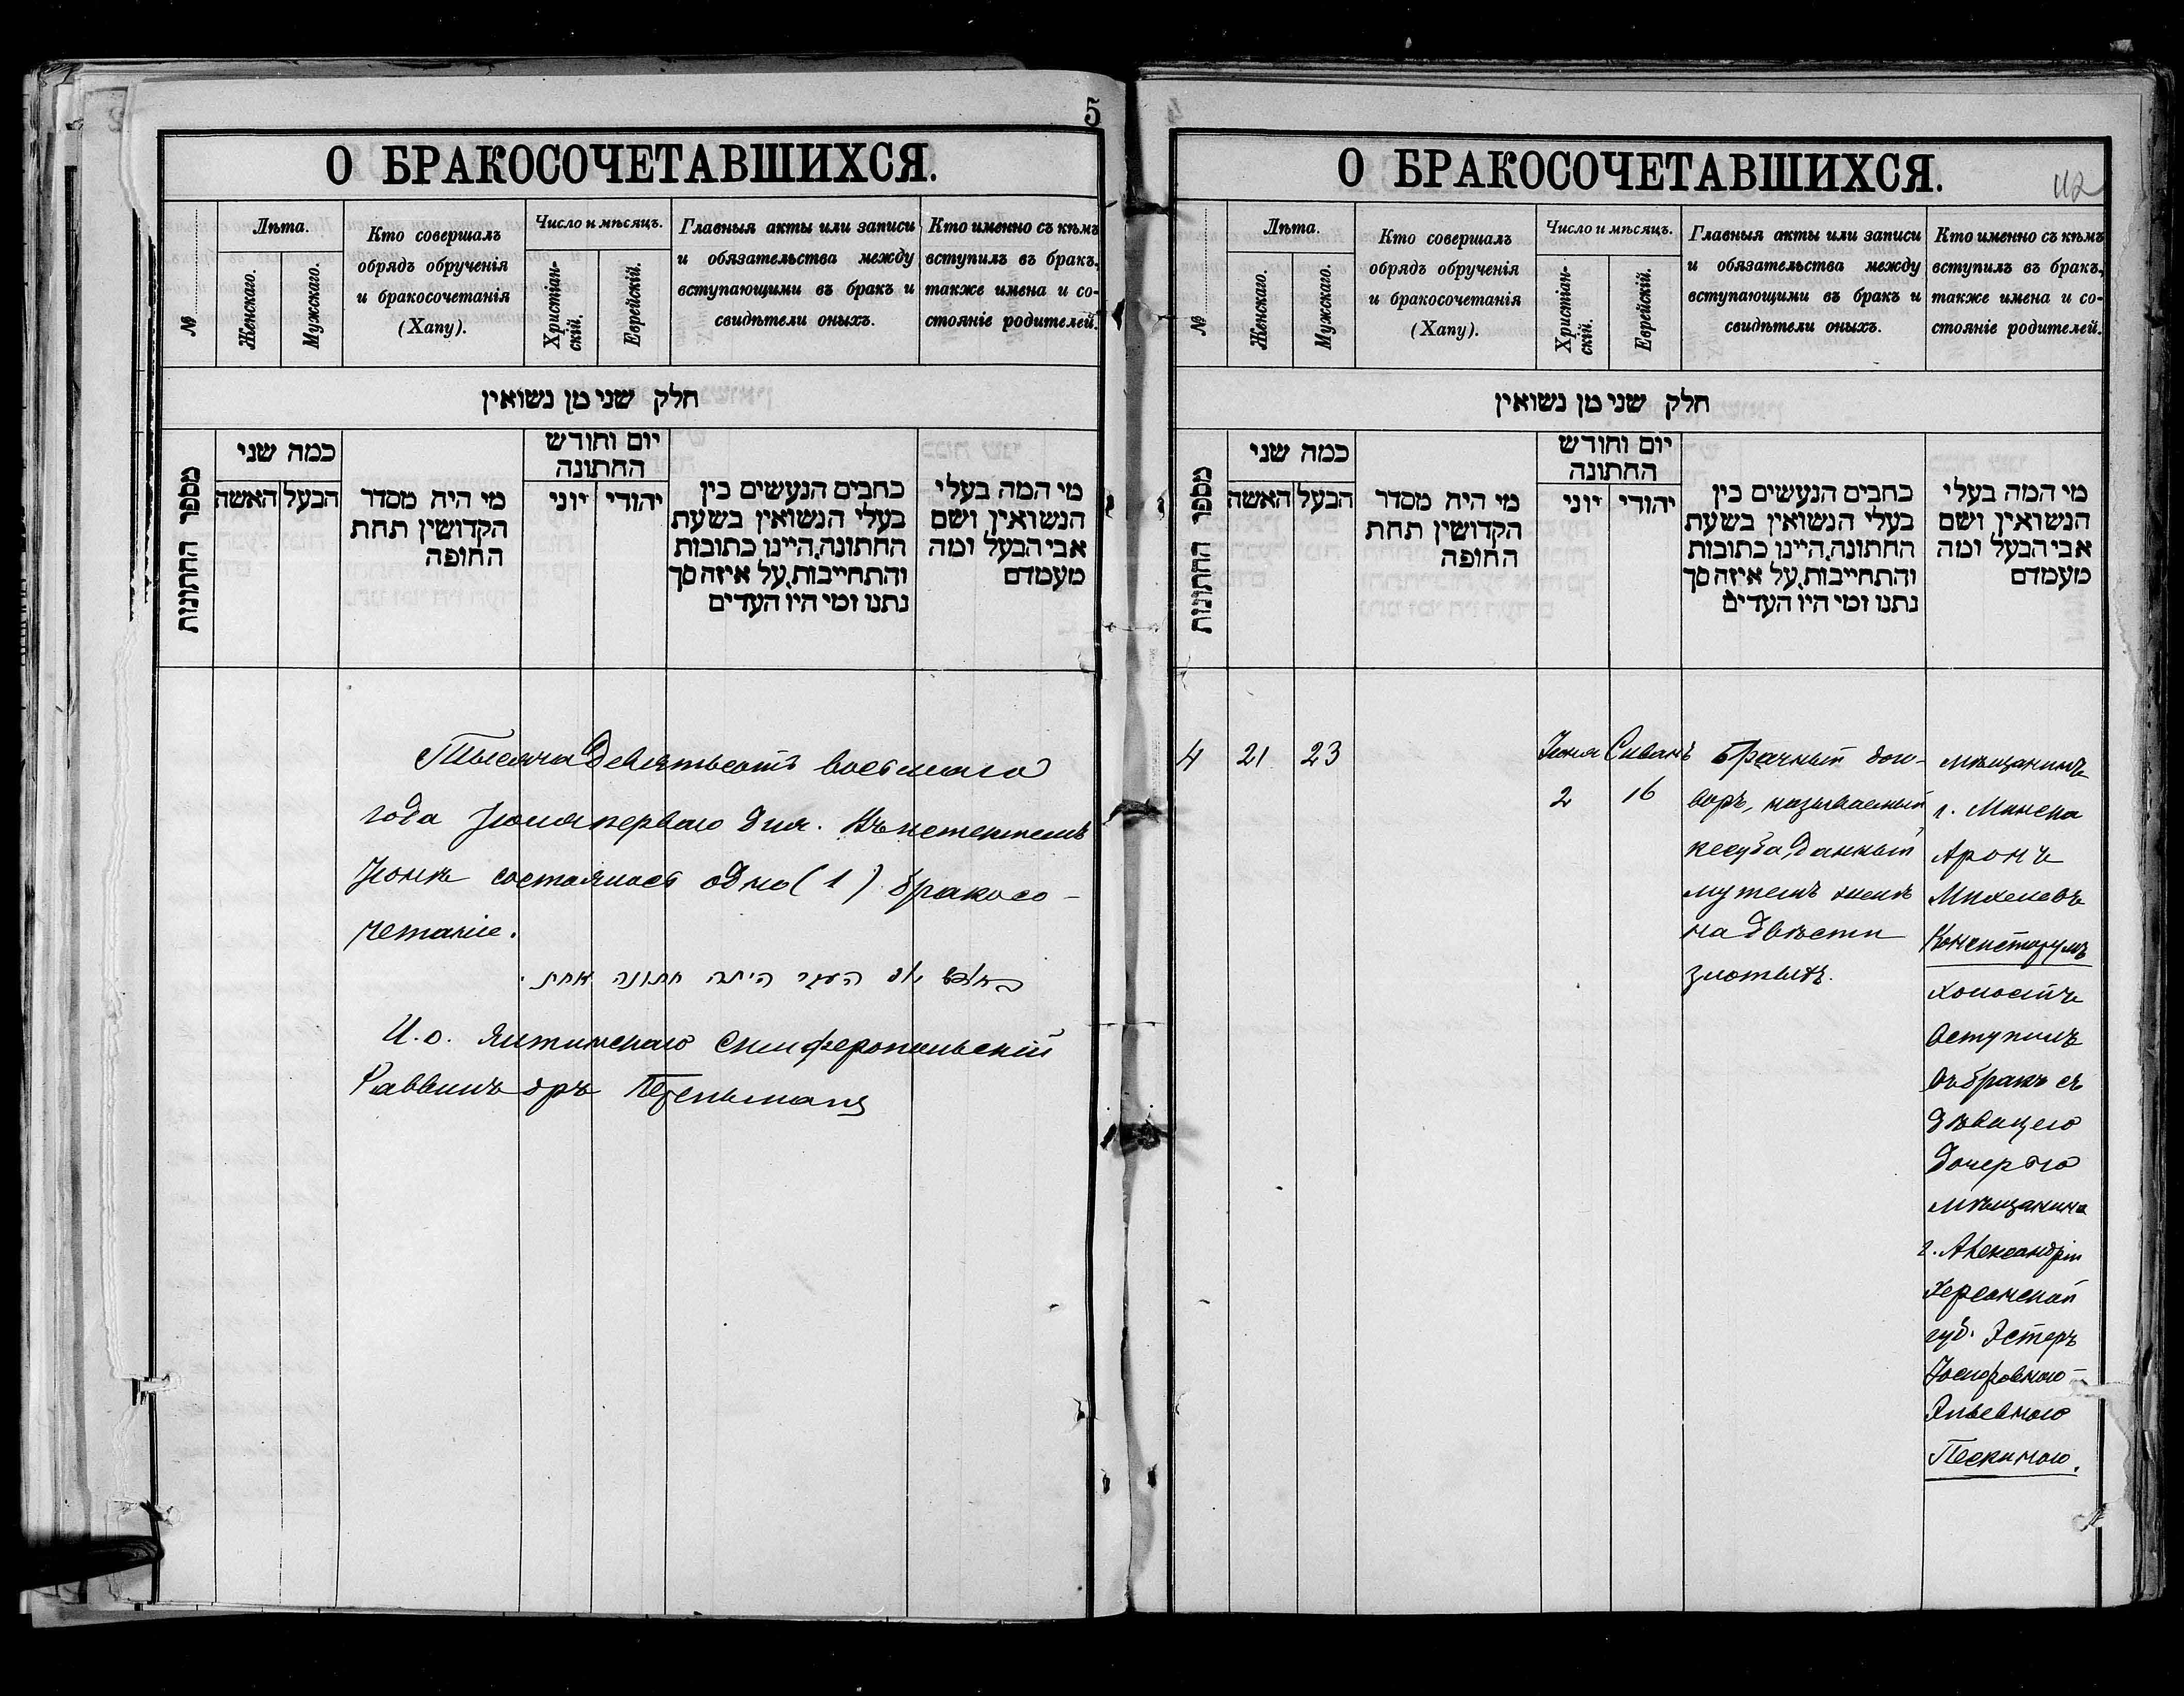 5
О БРАКОСОЧЕТАВШИХСЯ.
№
Лѣта.
Женскаго.
Мужскаго.
Кто совершалъ
обрядъ обрученія
и бракосочетанія
(Хапу).
Число и мѣсяцъ.
Христіан-
скій.
Еврейскій.
Главныя акты или записи
и обязательства между
вступающими въ бракъ и
свидѣтели оныхъ.
Кто именно съ кѣмъ
вступилъ въ бракъ,
также имена и со-
стояніе родителей.
חלק שני מן נשואין
מספר החתונות
כמה שני
האשה
הבעל
מי היה מסדר
הקדושין תחת
החופה
יום וחודש
החתונה
יוני
יהודי
כחבים הנעשים בין
בעלי הנשואין בשעת
החתונה.היינו כתובות
והתחייבות.על איזה סך
נתנו ומי היו העדים
מי המה בעלי
הנשואין ושם
אבי הבעל ומה
מעמדם
Тысяча девятьсотъ восьмаго
года Іюля перваго дня. Въ истекшемъ
Іюнѣ состоялось одно (1) бракосо-
четаніе.
העבר היתה חתונה אחת.
И.о. Ялтинскаго Симферопольскій
Раввинъ дръ
О БРАКОСОЧЕТАВШИХСЯ.
112
№
Лѣта.
Женскаго.
Мужскаго.
Кто совершалъ
обрядъ обрученія
и бракосочетанія
(Хапу).
Число и мѣсяцъ.
Христіан-
скій.
Еврейскій.
Главныя акты или записи
и обязательства между
вступающими въ бракъ и
свидѣтели оныхъ.
Кто именно съ кѣмъ
вступилъ въ бракъ,
также имена и со-
стояніе родителей.
חלק שני מן נשואין
מספר החתונות
כמה שני
האשה
הבעל
מי היה מסדר
הקדושין תחת
החופה
יום וחודש
החתונה
יוני
יהודי
כחבים הנעשים בין
בעלי הנשואין בשעת
החתונה.היינו כתובות
והתחייבות.על איזה סך
נתנו ומי היו העדים
מי המה בעלי
הנשואין ושם
אבי הבעל ומה
מעמדם
4
21
23
Іюня
2
Сиванъ
16
Брачный дого-
воръ, называемый
кесуба, данный
мужемъ женѣ
на двѣсти
злотыхъ.
мѣщанинъ
г. Минска
Аронъ
Михелевъ
Консисторумъ
холостъ
вступилъ
въ бракъ съ
дѣвицею
дочерью
мѣщанина
г. Александріи
Херсонской
губ. Эстеръ
Іосифовною-
Эльевною
Пескиною.